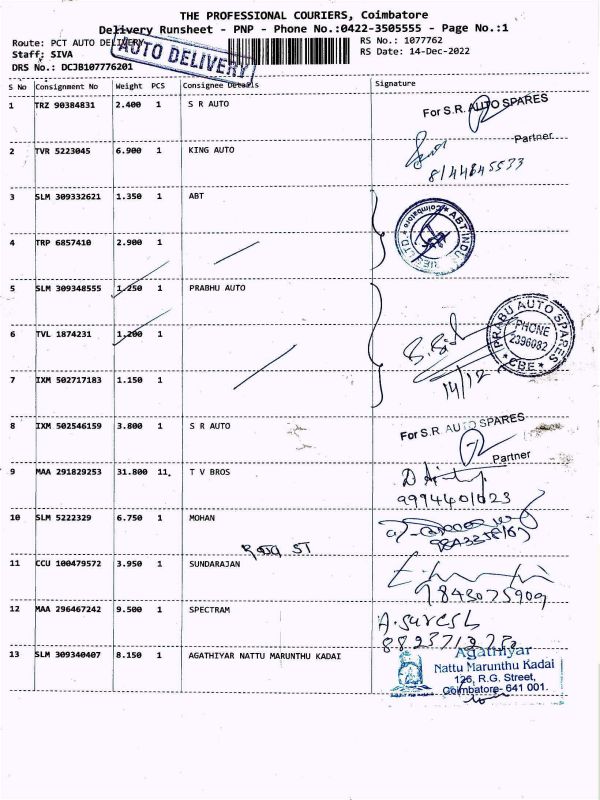 THE PROFESSIONAL COURIERS, Coimbatore
Delivery Runsheet - PNP - Phone No.:0422-3505555 - Page No.:1
Route: PCT AUTO DELIVERY
RS No.: 1077762
Staff: SIVA
RS Date: 14-Dec-2022
DRS No.: DCJB107776201
AUTO DELIVERY
S No Consignment No Weight PCS Consignee Details Signature
1 TRZ 90384831 2.400 1 S R AUTO
For S.R. AUTO SPARES
Partner
2 TVR 5223045 6.900 1 KING AUTO
3 SLM 309332621 1.350 1 ABT
4 TRP 6857410 2.900 1
5 SLM 309348555 1.250 1 PRABHU AUTO
PRABU AUTO SPARES
PHONE
2396082
* CBE *
6 TVL 1874231 1.200 1
7 IXM 502717183 1.150 1
14/12
8 IXM 502546159 3.800 1 S R AUTO
For S.R. AUTO SPARES
Partner
9 MAA 291829253 31.800 11 T V BROS
9994401023
10 SLM 5222329 6.750 1 MOHAN
11 CCU 100479572 3.950 1 SUNDARAJAN
9843075909
12 MAA 296467242 9.500 1 SPECTRAM
A. Suresh
13 SLM 309340407 8.150 1 AGATHIYAR NATTU MARUNTHU KADAI
Agathiyar
Nattu Marunthu Kadai
126, R.G. Street,
Coimbatore- 641 001.